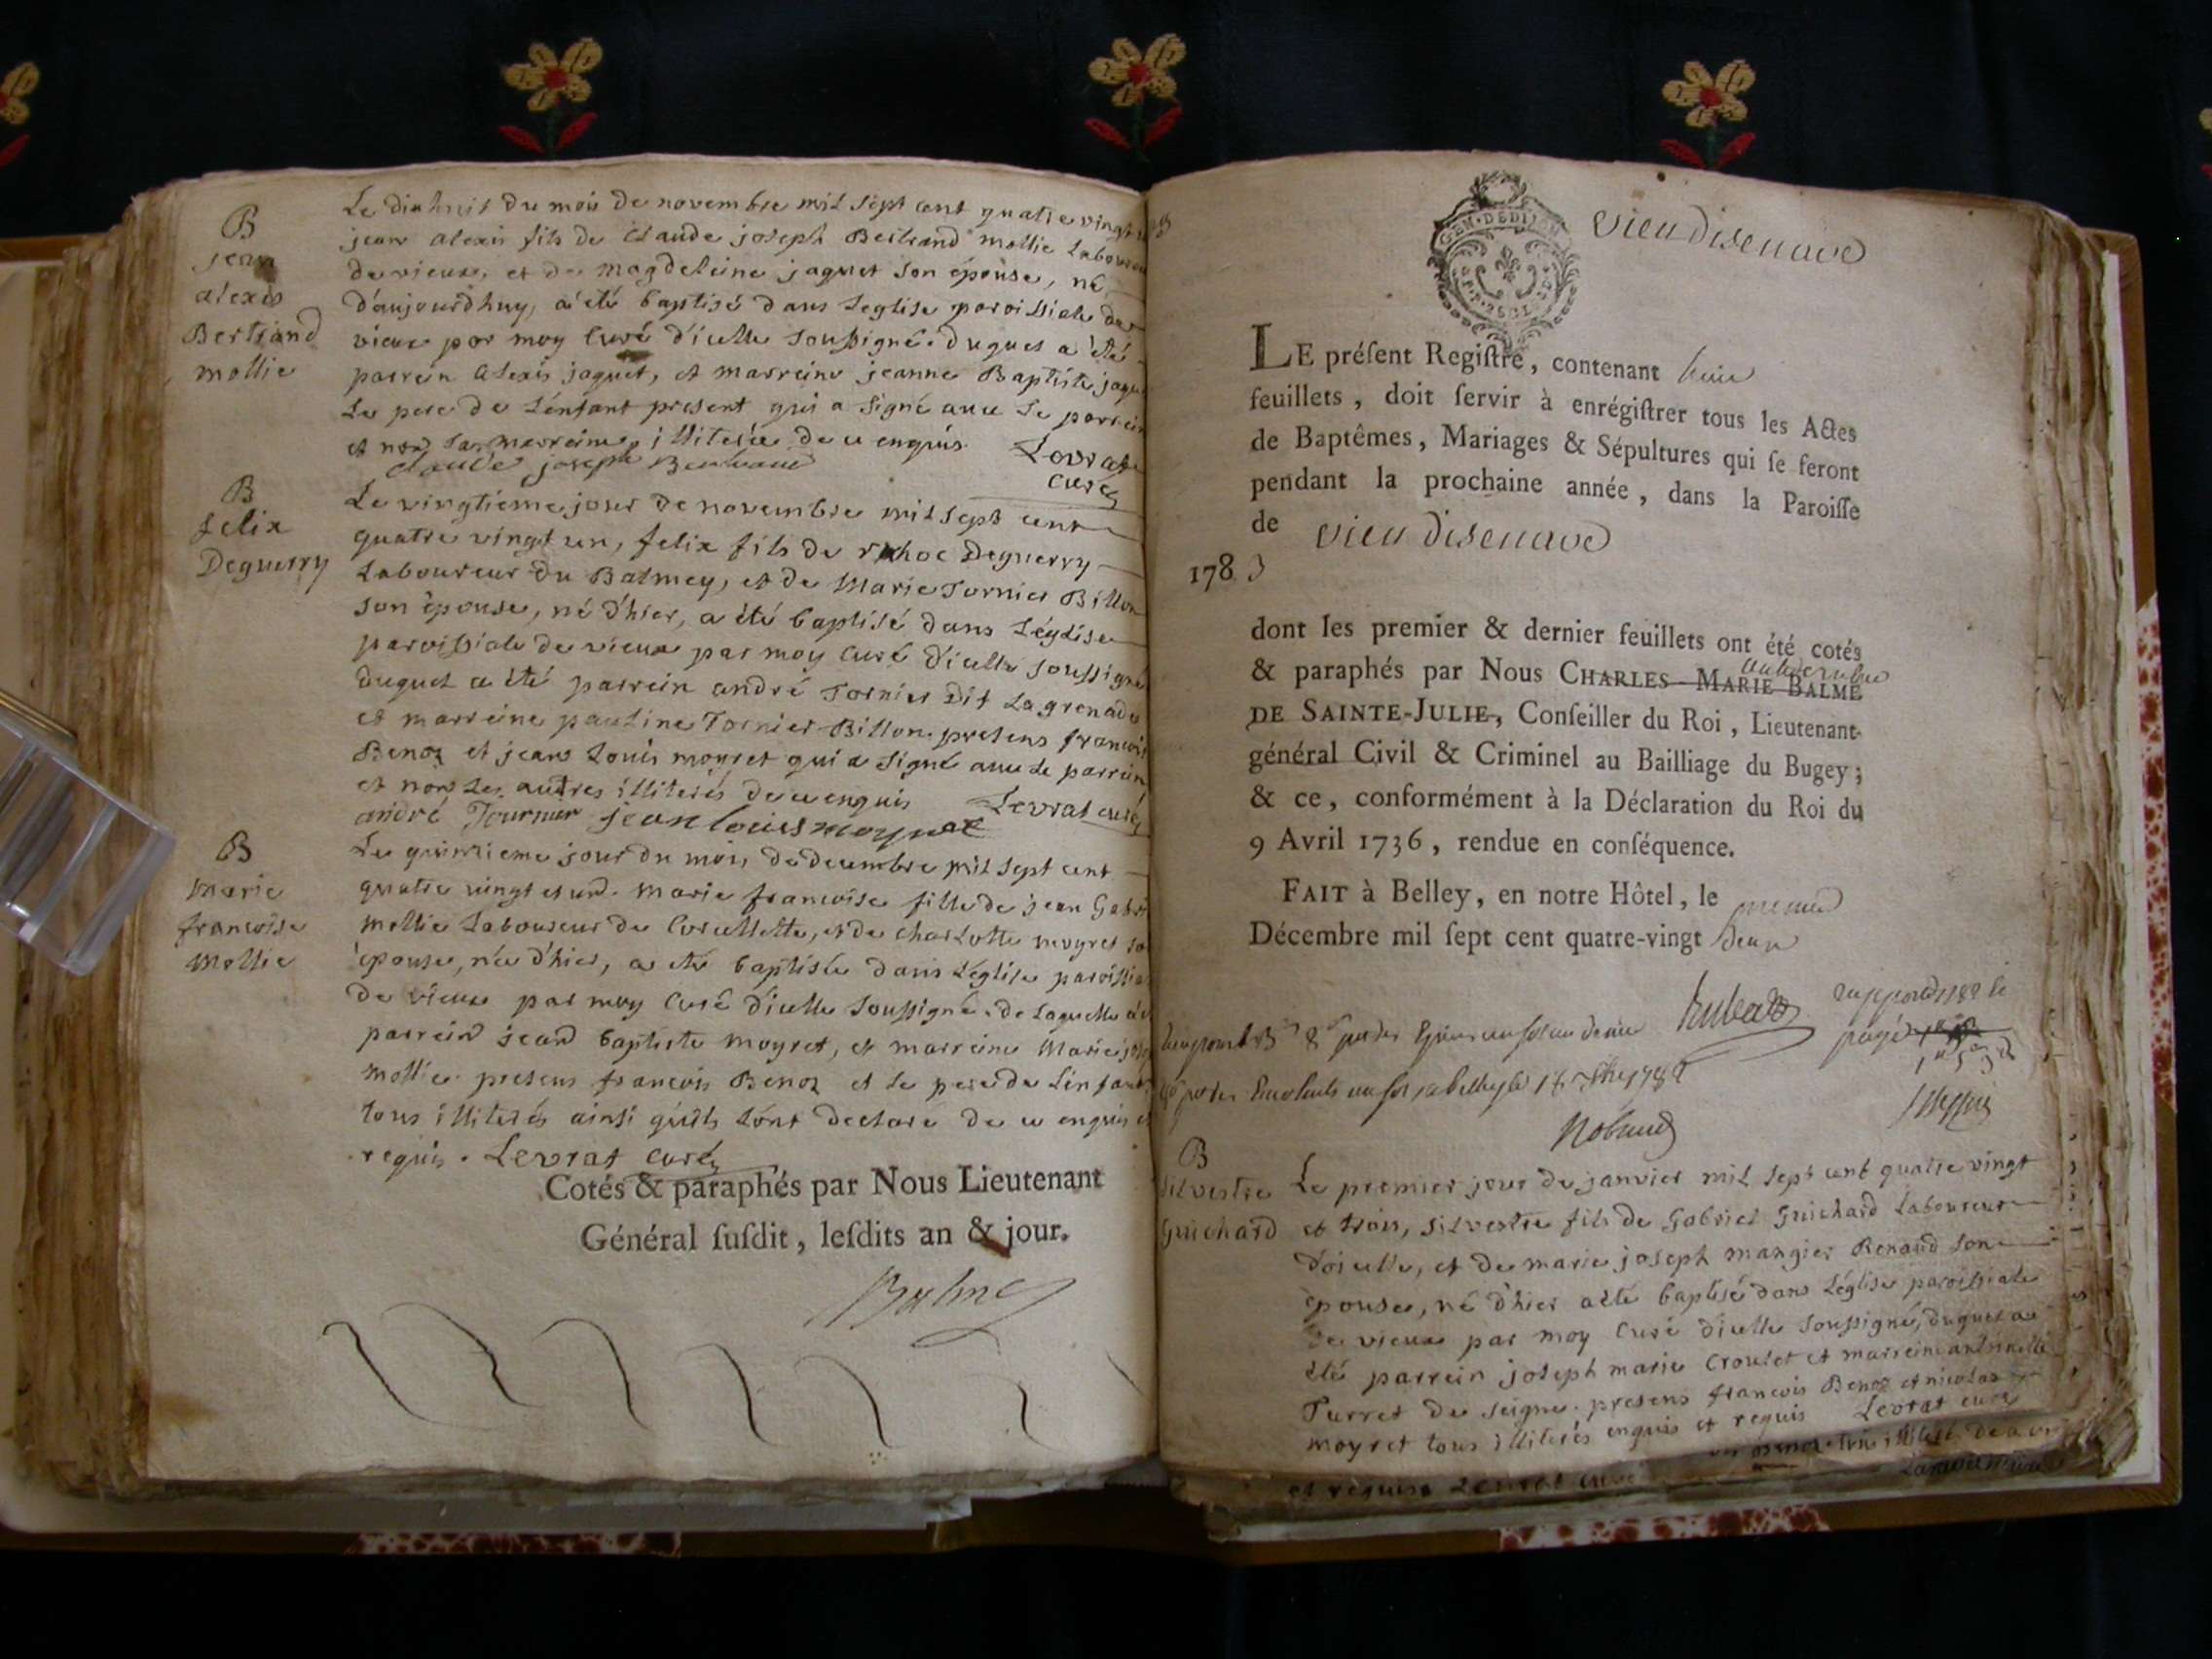 B
jean
alexis
Bertrand
mollie
Le dixhuit du mois de novembre mil sept cent quatre vingt
jean alexis fils de Claude joseph Bertrand mollie Laboureur
de vieux, et de magdeleine jaquet son épouse, né
d'aujourd'huy, a été baptisé dans Leglise paroissiale de
vieux par moy Curé d'icelle soussigné. duquel a été
parrein alexis jaquet, et marreine jeanne Baptiste
Le pere de L'enfant present qui a signé avec Le parrein
et non La marreine illiterée de ce enquis Levrat
Claude joseph Bertrand curé
B
felix
Deguerry
Le vingtieme jour de novembre mil sept cent
quatre vingt un, felix fils de Deguerry
Laboureur du Balmey, et de Marie Tornier Billon
son épouse, né d'hier, a été baptisé dans Léglise
paroissiale de vieux par moy Curé d'icelle soussigné
duquel a été parrein andré Tornier dit La grenade
et marreine pauline Tornier-Billon. presens francois
Benoz et jean Louis moyret qui a signé avec Le parrein
et non Les autres illiterés de ce enquis Levrat curé
andré Tournier jean louis moyret
B
Marie
francoise
Mollie
Le quinzieme jour du mois de decembre mil sept cent
quatre vingt et un. Marie francoise fille de jean
mollie Laboureur de, et de charlotte moyret
épouse, née d'hier, a été baptisée dans L'église
de vieux par moy Curé d'icelle soussigné. de Laquelle
parrein jean baptiste moyret, et marreine Marie
mollie. presens francois Benoz et Le pere de L'enfant
tous illiterés ainsi qu'ils L'ont declaré de ce enquis
requis. Levrat curé
Cotés & paraphés par Nous Lieutenant
Général ſuſdit, leſdits an & jour.
Balme
vieu disenave
GEN. DE DIJON
LE préſent Regiſtre, contenant huit
feuillets, doit ſervir à enrégiſtrer tous les Actes
de Baptêmes, Mariages & Sépultures qui ſe feront
pendant la prochaine année, dans la Paroiſſe
de vieu disenave
1783
dont les premier & dernier feuillets ont été cotés
& paraphés par Nous CHARLES-MARIE BALME
DE SAINTE-JULIE, Conſeiller du Roi, Lieutenant-
général Civil & Criminel au Bailliage du Bugey;
& ce, conformément à la Déclaration du Roi du
9 Avril 1736, rendue en conſéquence.
FAIT à Belley, en notre Hôtel, le premier
Décembre mil ſept cent quatre-vingt deux
B
Silvestre
Guichard
Le premier jour de janvier mil sept cent quatre vingt
et trois, silvestre fils de Gabriel Guichard Laboureur
d'oicelle, et de marie joseph mangier Renaud son
épouse, né d'hier a été baptisé dans Léglise paroissiale
de vieux par moy Curé d'icelle soussigné, duquel a
été parrein joseph marie Croulet et marreine antoinette
Turret de seigne. presens francois Benoz et nicolas
moyret tous illiterés enquis et requis Levrat curé
et requis Levrat curé